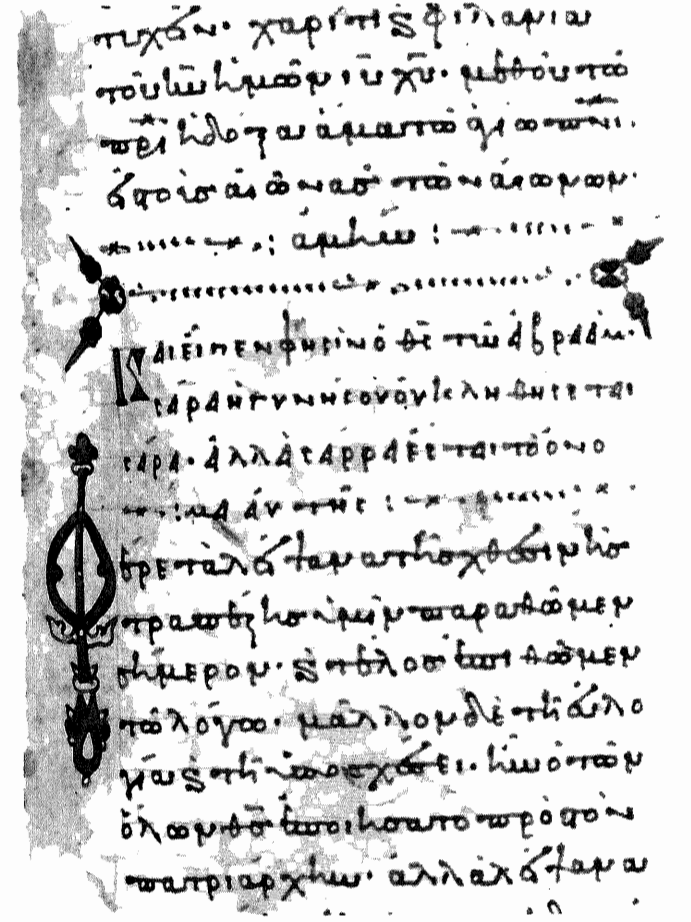 τυχεῖν· χάριτι κ φιλανια
τοῦ κῦ ἡμῶν ιῦ χῦ· μεθοῦ τῶ
πρι ἡ δόξα ἅμα τῶ ἁγίω πνι.
εἰς τοὺσ αἰῶνασ τῶν αἰώνων·
ἀμήν:
Καὶ εἶπεν φησὶν ὁ θς τῶ ἀβραάμ·
σάρα ἡ γυνή σου οὐ κληθήσεται
σάρα· ἀλλὰ σάρρα ἔσται τὸ ὄνο
μα αὐτῆς:
Φέρε τὰ λείψανα τῆσ χθὲσιν ῆσ
τραπέζησ ὑμῖν παραθῶμεν
σήμερον· κ τέλοσ ἐπιθῶμεν
τῶ λόγω· μᾶλλον δὲ τῆ εὐλο
γία κ τῆ ὑποσχέσει· ἣν ὁ τῶν
ὅλων θσ ἐποιήσατο πρὸσ τὸν
πατριάρχην· ἀλλὰ λείψανα